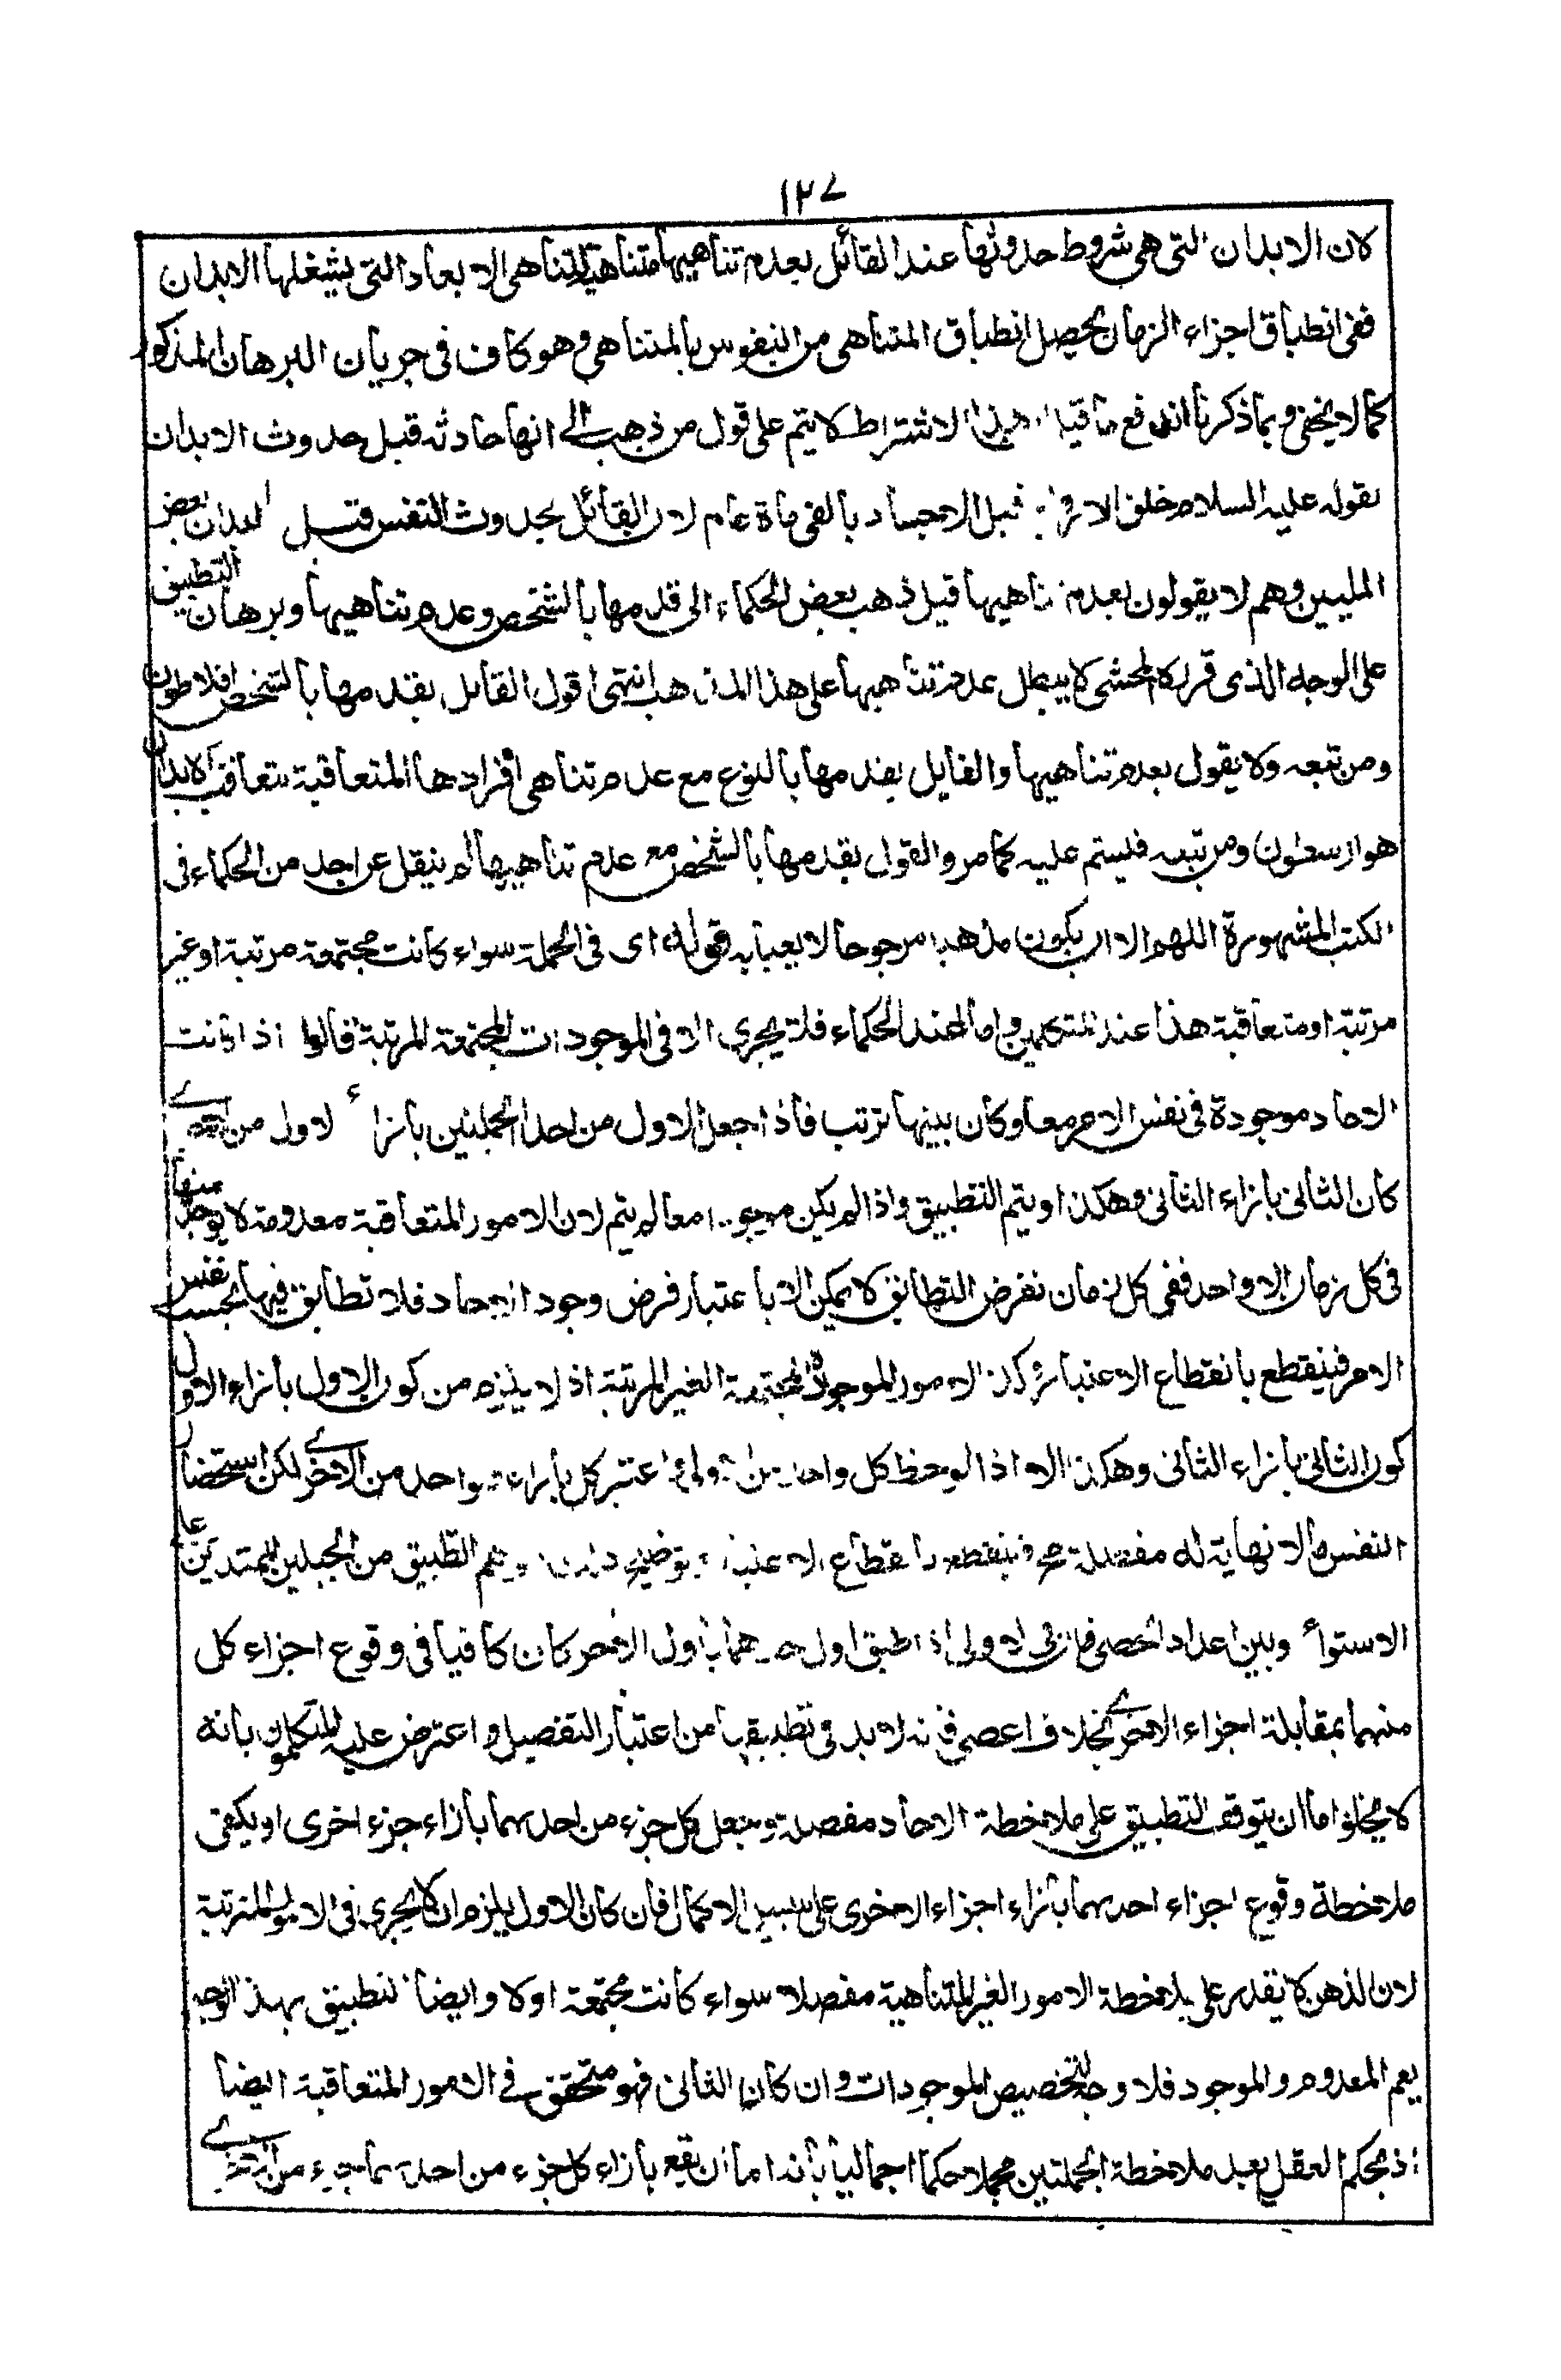 ١٢٧
لان الابدان التى هى شروط حدوثها عند القائل بعدم تناهيها متناهية لتناهى الابعاد التى يشغلها الابدان
ففى انطباق اجزاء الزمان يحصل انطباق المتناهى من النفوس بالمتناهى وهو كاف فى جريان البرهان المذكور
كما لا يخفى وبما ذكرنا اندفع ما قيل هذا الاشتراط لا يتم على قول من ذهب الى انها حادثة قبل حدوث الابدان
لقوله عليه السلام خلق الارواح قبل الاجساد بالفى مأة عام لان القائل بحدوث النفس قبل الابدان بعض
المليين وهم لا يقولون بعدم تناهيها قيل ذهب بعض الحكماء الى قدمها بالشخص وعدم تناهيها وبرهان التطبيق
على الوجه الذى قرره المحشى لا يبطل عدم تناهيها على هذا المذهب انتهى اقول القائل بقدمها بالشخص افلاطون
ومن تبعه ولا يقول بعدم تناهيها والقايل بقدمها بالنوع مع عدم تناهى افرادها المتعاقبة بتعاقب الابدان
هو ارسطون ومن تبعه فليستم عليه كما مر والقول بقدمها بالشخص مع عدم تناهيها لم ينقل عن احد من الحكماء فى
الكتب المشهورة اللهم الا ان يكون مذهبا مرجوحا لا يعبأ به قوله اى فى الجملة سواء كانت مجتمعة مرتبة او غير
مرتبة او متعاقبة هذا عند المتكلمين واما عند الحكماء فلا يجرى الا فى الموجودات المجتمعة المرتبة قالوا اذا كانت
الاحاد موجودة فى نفس الامر معا وكان بينها ترتب فاذا جعل الاول من احد الجملتين بازاء الاول من اخرى
كان الثانى بازاء الثانى وهكذا ويتم التطبيق واذا لم يكن موجودا معا لم يتم لان الامور المتعاقبة معدومة لا يوجد منها
فى كل زمان الا واحد ففى كل زمان نفرض التطابق لا يمكن الا باعتبار فرض وجود الاحاد فلا تطابق فيها بحسب نفس
الامر فينقطع بانقطاع الاعتبار وكذا الامور الموجودة المجتمعة الغير المرتبة اذ لا يلزم من كون الاول بازاء الاول
كون الثانى بازاء الثانى وهكذا الا اذا لوحظ كل واحد من الاولى واعتبر كل بازاء واحد من الاخرى لكن استحضار
النفس ما لا نهاية له مفصلة مح فينقطع بانقطاع الاعتبار وتوضيحه توهم التطبيق من الجبلين الممتدين على
الاستواء وبين اعداد الحصى فان فى الاولى اذا طبق اول احدهما باول الاخر كان كافيا فى وقوع اجزاء كل
منهما بمقابلة اجزاء الاخرى بخلاف الحصى فانه لابد فى تطبيقها من اعتبار التفصيل واعترض عليه المتكلمون بانه
لا يخلوا اما ان يتوقف التطبيق على ملاحظة الاحاد مفصلة وبجعل كل جزء من احدهما بازاء جزء اخرى او يكفى
ملاحظة وقوع اجزاء احدهما بازاء اجزاء الاخرى على سبيل الاجمال فان كان الاول يلزم ان لا يجرى فى الامور المترتبة
لان الذهن لا يقدر على ملاحظة الامور الغير المتناهية مفصلا سواء كانت مجتمعة اولا وايضا التطبيق بهذا الوجه
يعم المعدوم والموجود فلا وجه لتخصيص الموجودات وان كان الثانى فهو متحقق فى الامور المتعاقبة ايضا
اذ يحكم العقل بعد ملاحظة الجملتين مجملا حكما اجماليا بانه اما ان يقع بازاء كل جزء من احدهما جزء من اخرى